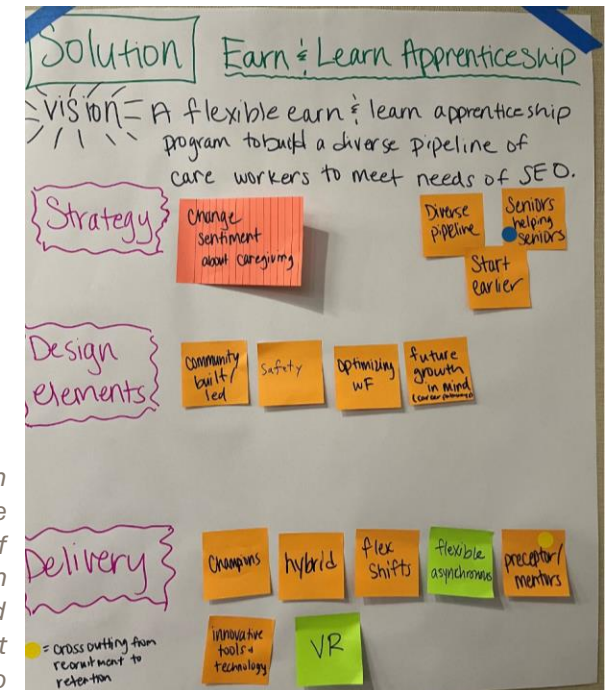 Solution Earn & Learn Apprenticeship
Vision = A flexible earn & learn apprenticeship
program to build a diverse pipeline of
care workers to meet needs of SEO.
Strategy
Change
sentiment
about caregiving
Diverse
pipeline
Seniors
helping
seniors
Start
earlier
Design
elements
Community
built/
led
Safety
Optimizing
WF
future
growth
in mind
(career pathways)
Delivery
Champions
hybrid
flex
Shifts
flexible
asynchronous
preceptor/
mentors
innovative
tools &
technology
VR
= cross cutting from
recruitment to
retention
n
e
f
n
d
t
o